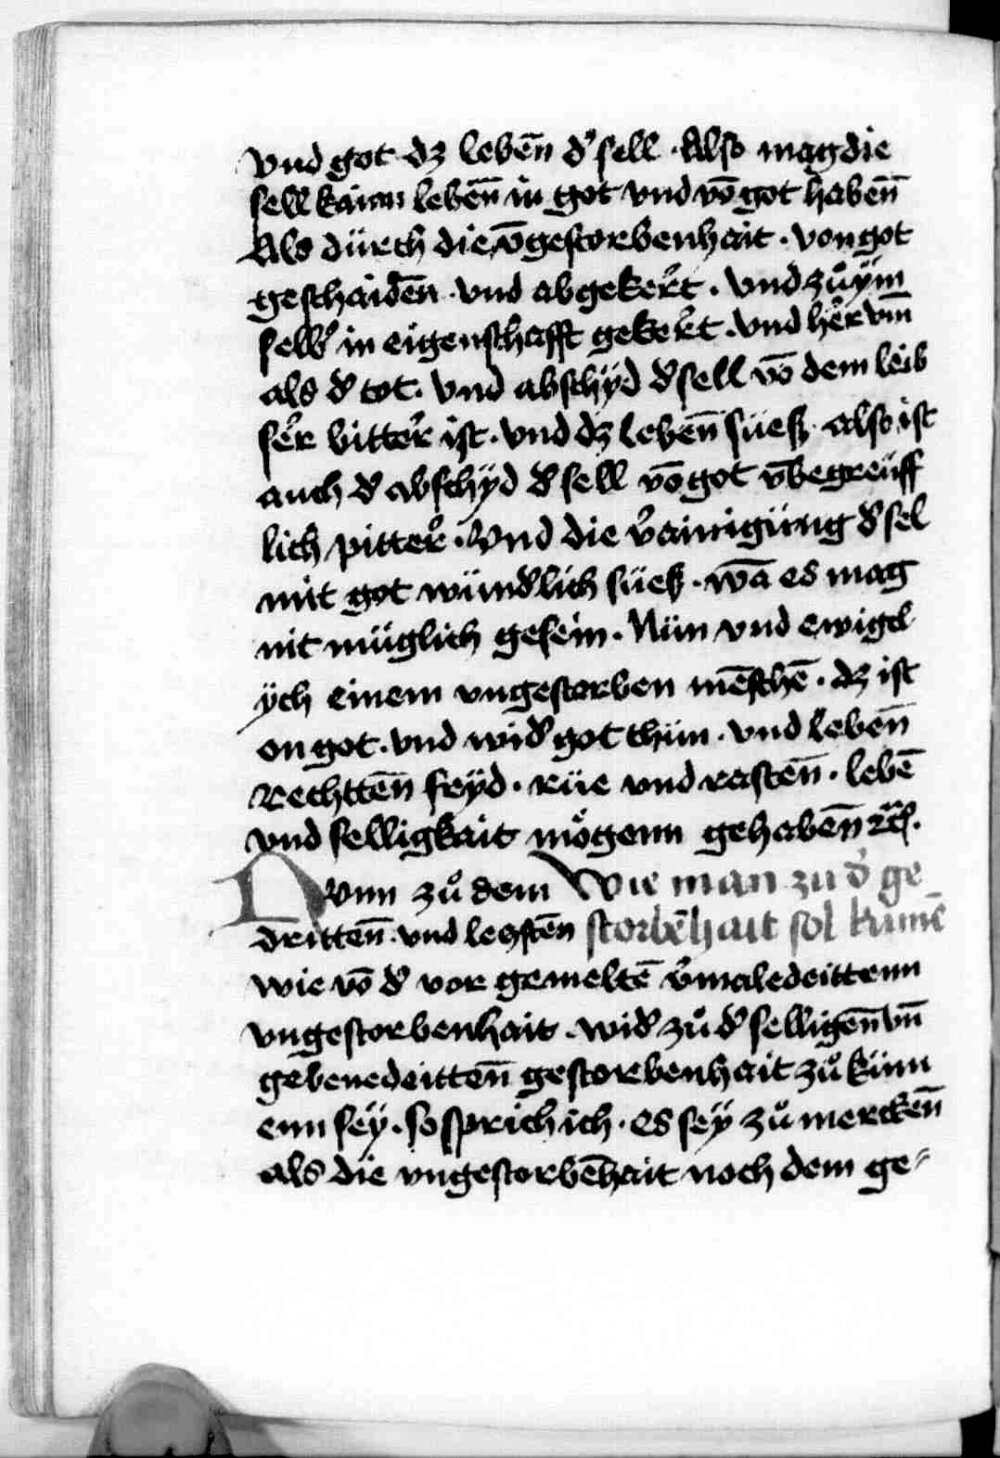 vnd got dz lebēn d̛ sell · Also mag die
sell kainn lebēn in got vnd vō got habēn
Als dürch die v̄gestorbenhait · von got
geschaidēn · vnd abgeker̛t · vnd zů ÿm
selb̛ in eigenschafft geker̛t · vnd her̛vm̄
als d̛ tot · vnd abschÿd d̛ sell vō dem leib
ser̛ bitter̛ ist · vnd dz lebēn süeß · also ist
auch d̛ abschÿd d̛ sell vō got v̄begreüff
lich pitter̛ · Vnd die v̛ainigüng d̛ sel
mit got wünd̛lich süeß · wā es mag
nit müglich gesein · Nün vnd ewigel
ÿch einem vngestorben mēschē · dz ist
on got · vnd wid̛ got thün · vnd lebēn
rechttēn frÿd · rüe vnd rastēn · lebē
vnd selligkait mögenn gehabēn ⁊c̄
Nvnn zů dem Wie man zu d̛ ge
drittēn · vnd lečstēn storbēhait sol kumē
wie vō d̛ vor gemeltē v̛maledeittenn
vngestorbenhait · wid̛ zů d̛ selligēn vn̄
gebenedeittēn gestorbenhait zů künn
enn seÿ · so sprich ich · es seÿ zů merckēn
als die vngestorbēhait noch dem ge⸗